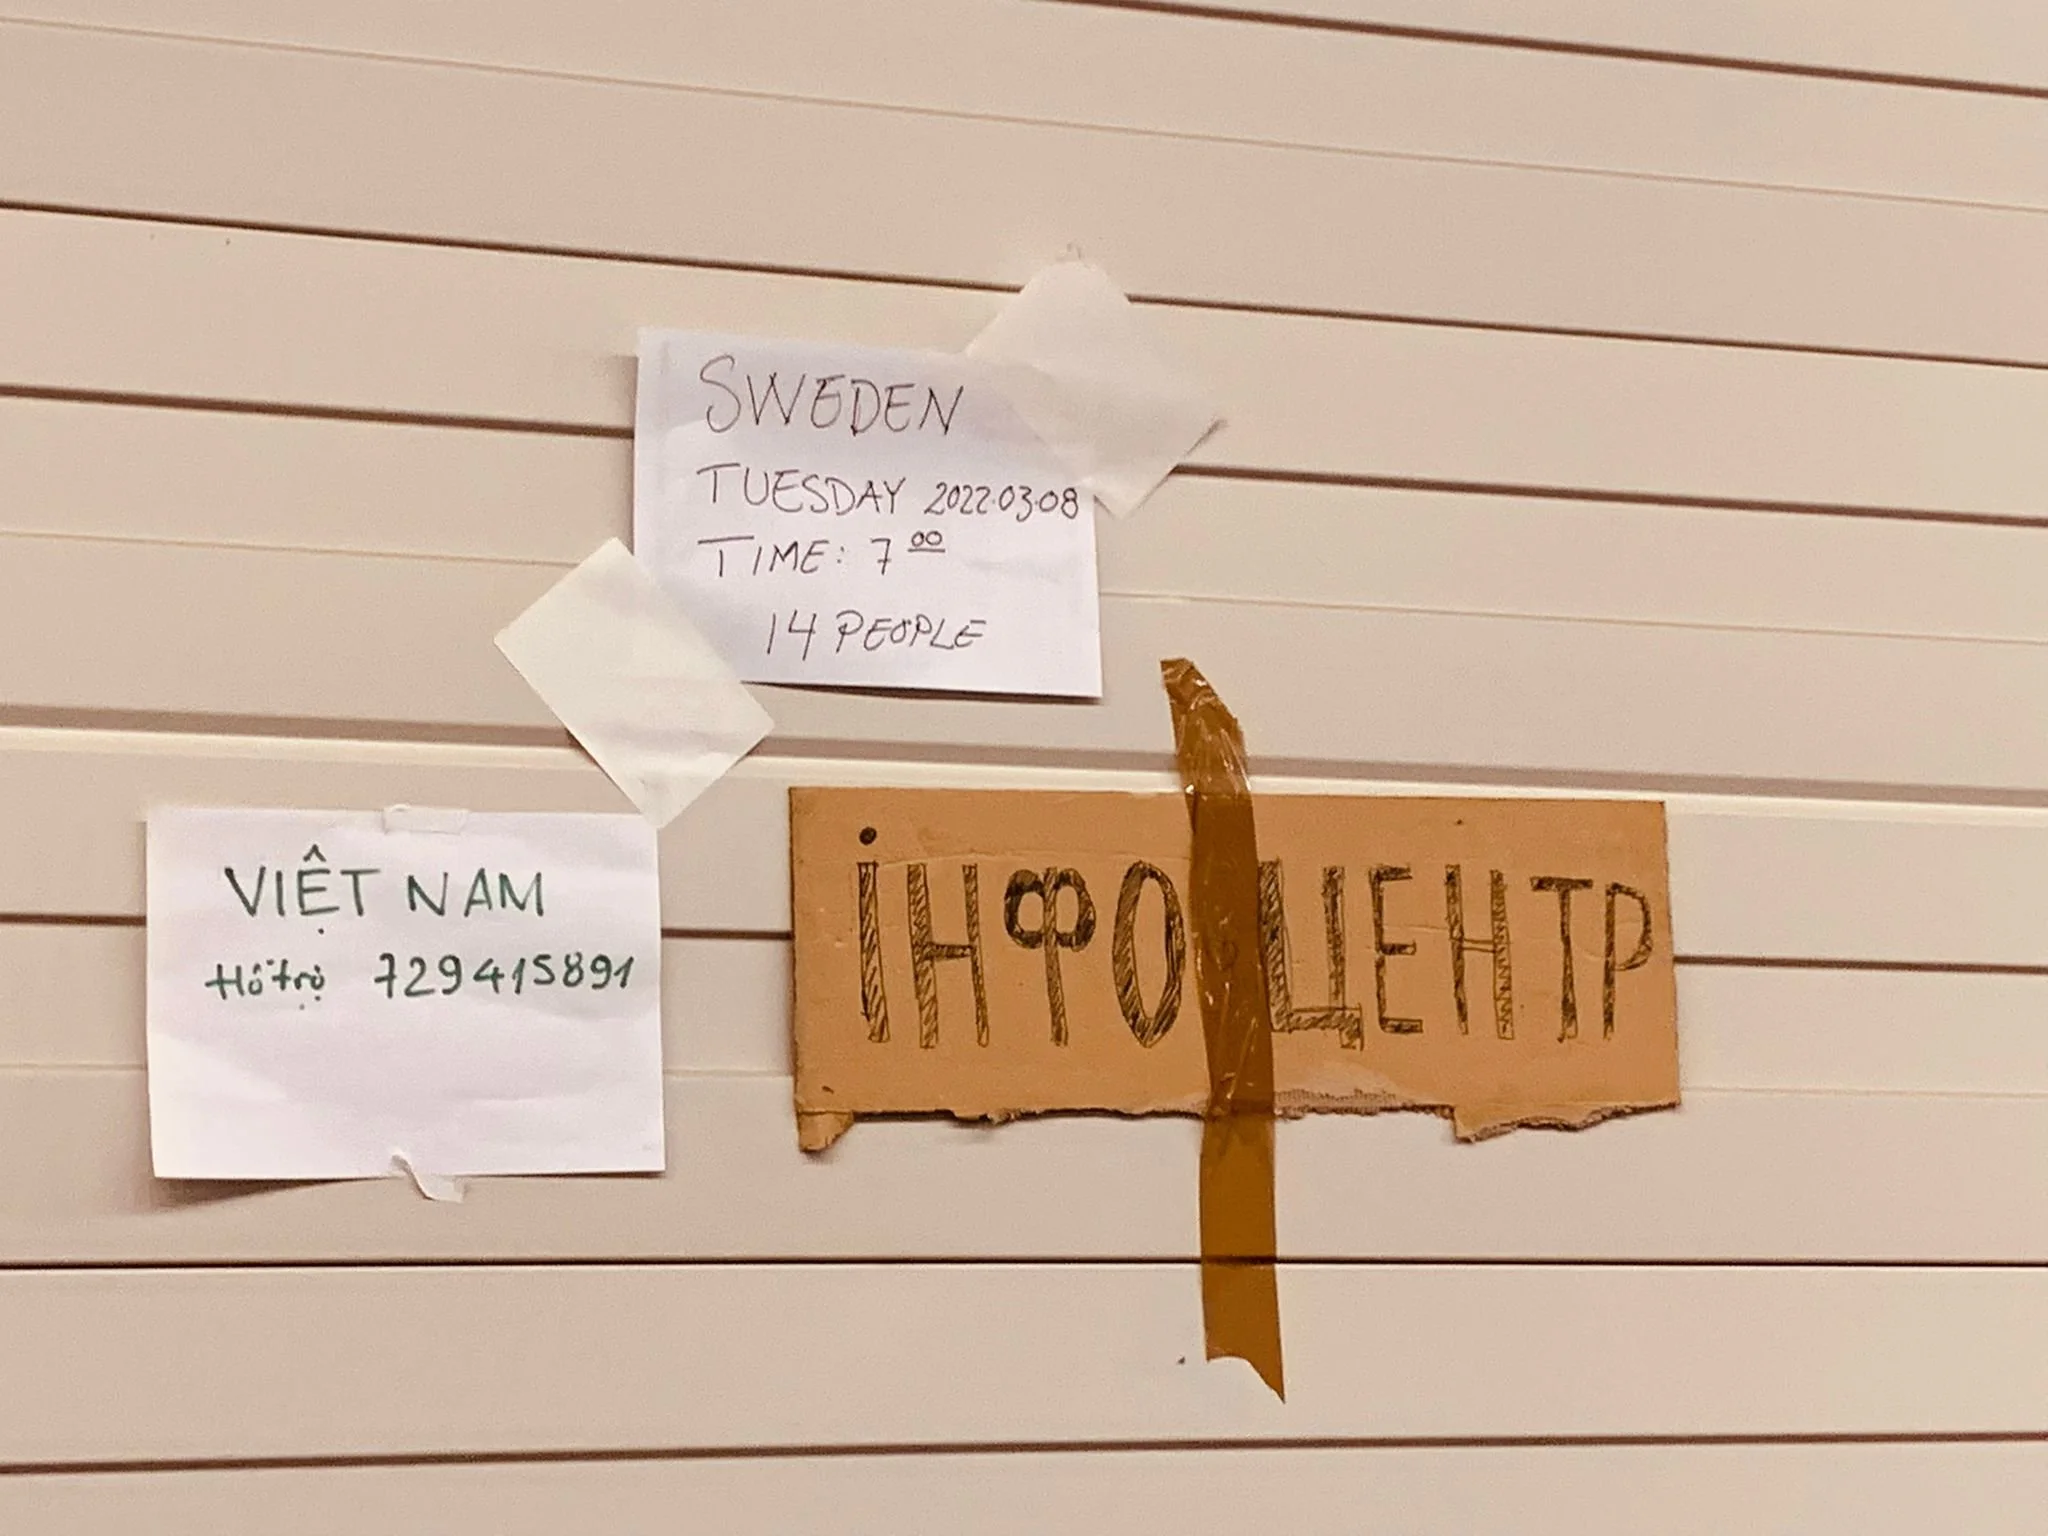 SWEDEN
TUESDAY 2022.03.08
TIME: 7 00
14 PEOPLE
VIỆT NAM
Hỗ trợ 729415891
ІНФОЦЕНТР